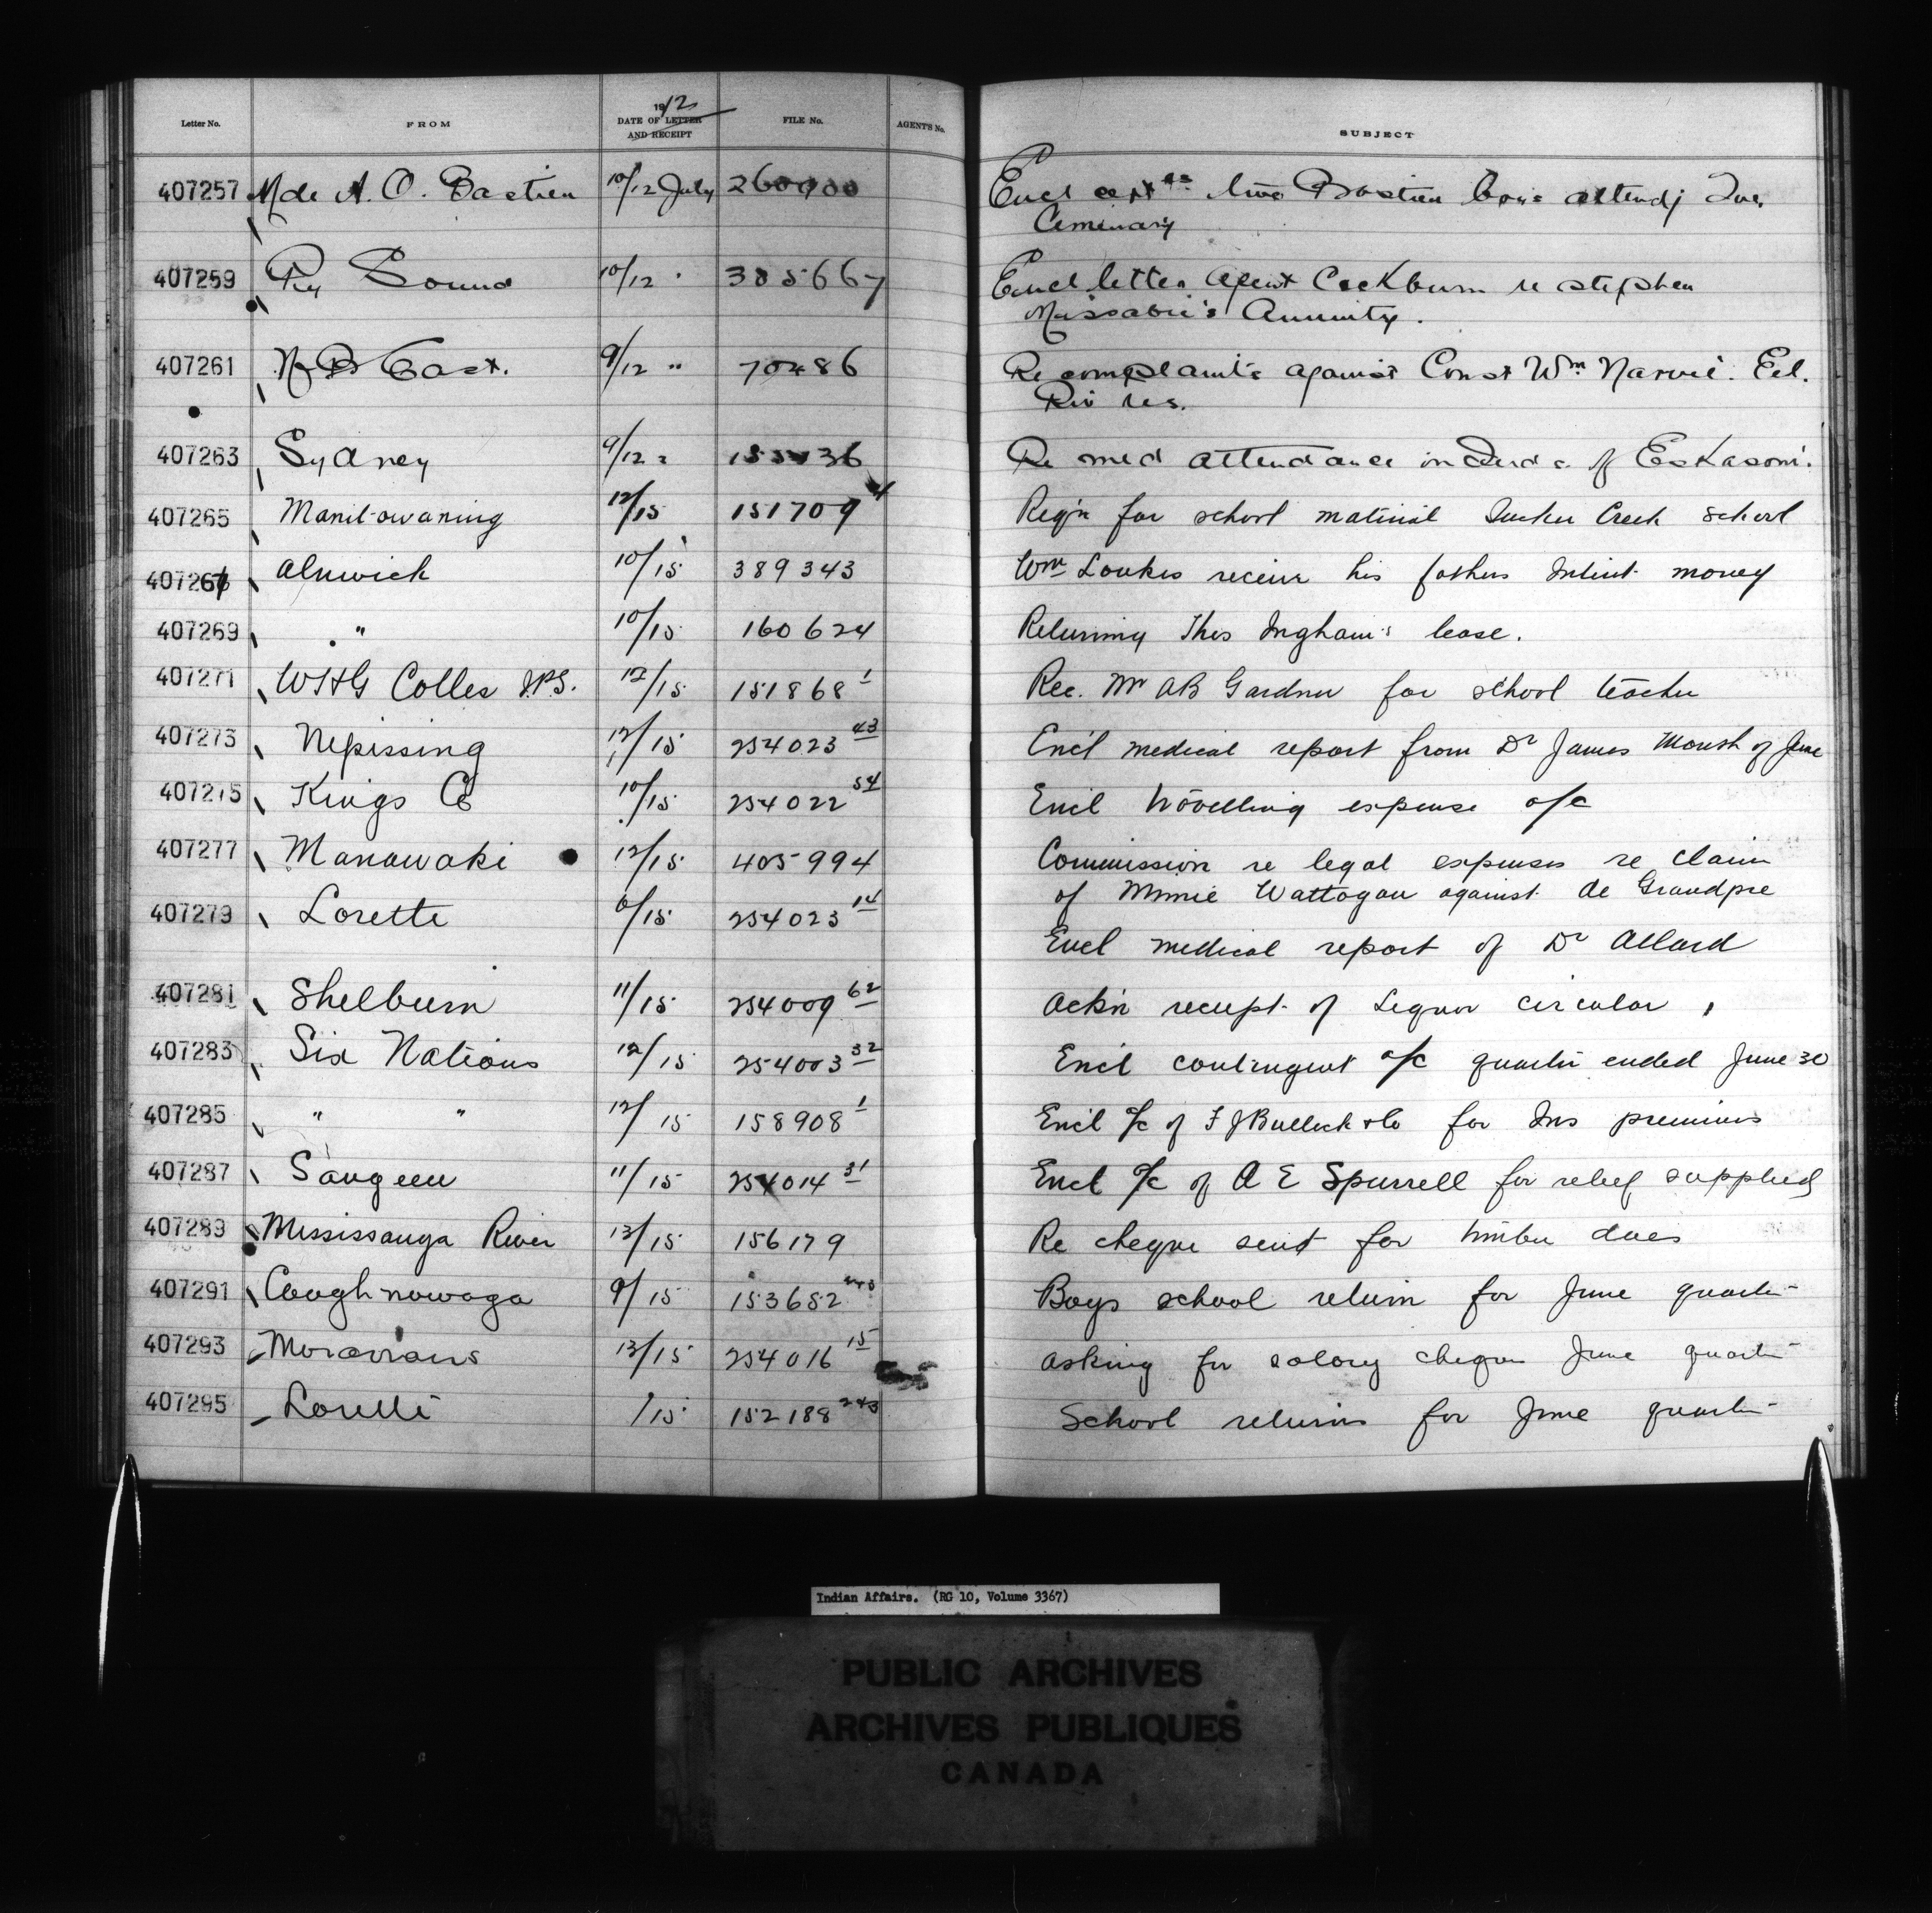 Letter No. FROM 1912 DATE OF LETTER AND RECEIPT FILE No. AGENT'S No. SUBJECT
407257 Mde A. O. Bastien 10/12 July 260900 Encl Bastien attendg
Ceminary
407259 Pry Sound 10/12 " 385667 Encl letter Agent Cockburn re stephen
Missabie's Annuity.
407261 N B East. 9/12 " 70486 Re complaints against Const Wm Narvie. Eel.
Riv res.
407263 Sydney 9/12 " Re med attendance on Inds. of Eskasoni.
407265 Manitowaning 12/15 151709 4 Reqn for school material Sucker Creek school
407267 Alnwick 10/15 389343 Wm Loukes receive his fathers Intint money
407269 " 10/15 160624 Returning Thos Ingham's lease.
407271 WHG Colles I.P.S. 12/15 151868 1 Rec. Mr AB Gardner for school teacher
407273 Nipissing 12/15 254023 43 Encl medical report from Dr James of June
407275 Kings Co 10/15 254022 54 Encl travelling expense a/c
407277 Manawaki 12/15 405994 Commission re legal expenses re claim
of Minnie Wattogan against de Grandpre
407279 Lorette 6/15 254023 14
Encl medical report of Dr Allard
407281 Shelburn 11/15 254009 62 Ackn receipt of Liquor circular
407283 Six Nations 12/15 254003 32 Encl contingent a/c quarter ended June 30
407285 " " 12/15 158908 1 Encl a/c of F J Bullock & Co for Ins premiums
407287 Saugeen 11/15 254014 31 Encl a/c of A E Spurrell for relief supplied
407289 Mississauga River 13/15 156179 Re cheque sent for timber dues
407291 Caughnawaga 9/15 153652 Boys school return for June quarter
407293 Moravians 13/15 254016 15 Asking for salary cheque June quarter
407295 Lorette /15 152188 243 School returns for June quarter
Indian Affairs. (RG 10, Volume 3367)
PUBLIC ARCHIVES
ARCHIVES PUBLIQUES
CANADA